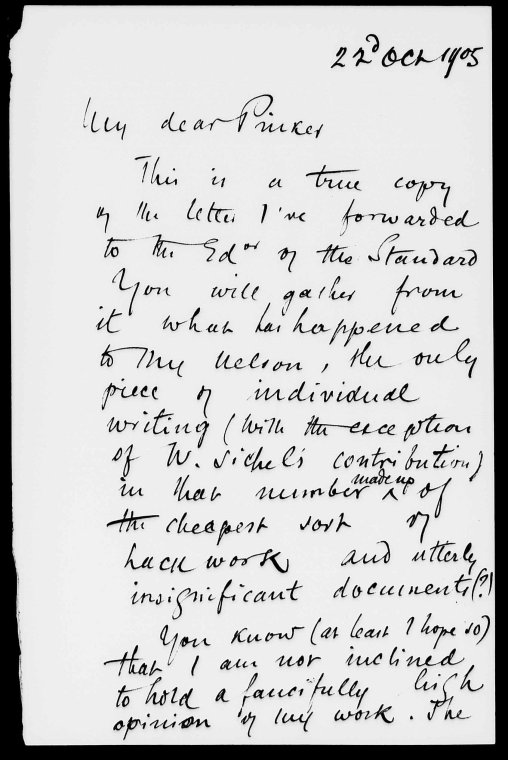 22d Oct 1905
My dear Pinker
This is a true copy
of the letter I've forwarded
to the Edor of the Standard
You will gather from
it what has happened
to my Nelson, the only
piece of individual
writing (with the exception
of W. Sichel's contribution)
in that number made up of
the cheapest sort of
hack work and utterly
insignificant documents (?)
You know (at least I hope so)
that I am not inclined
to hold a fancifully high
opinion of my work. The